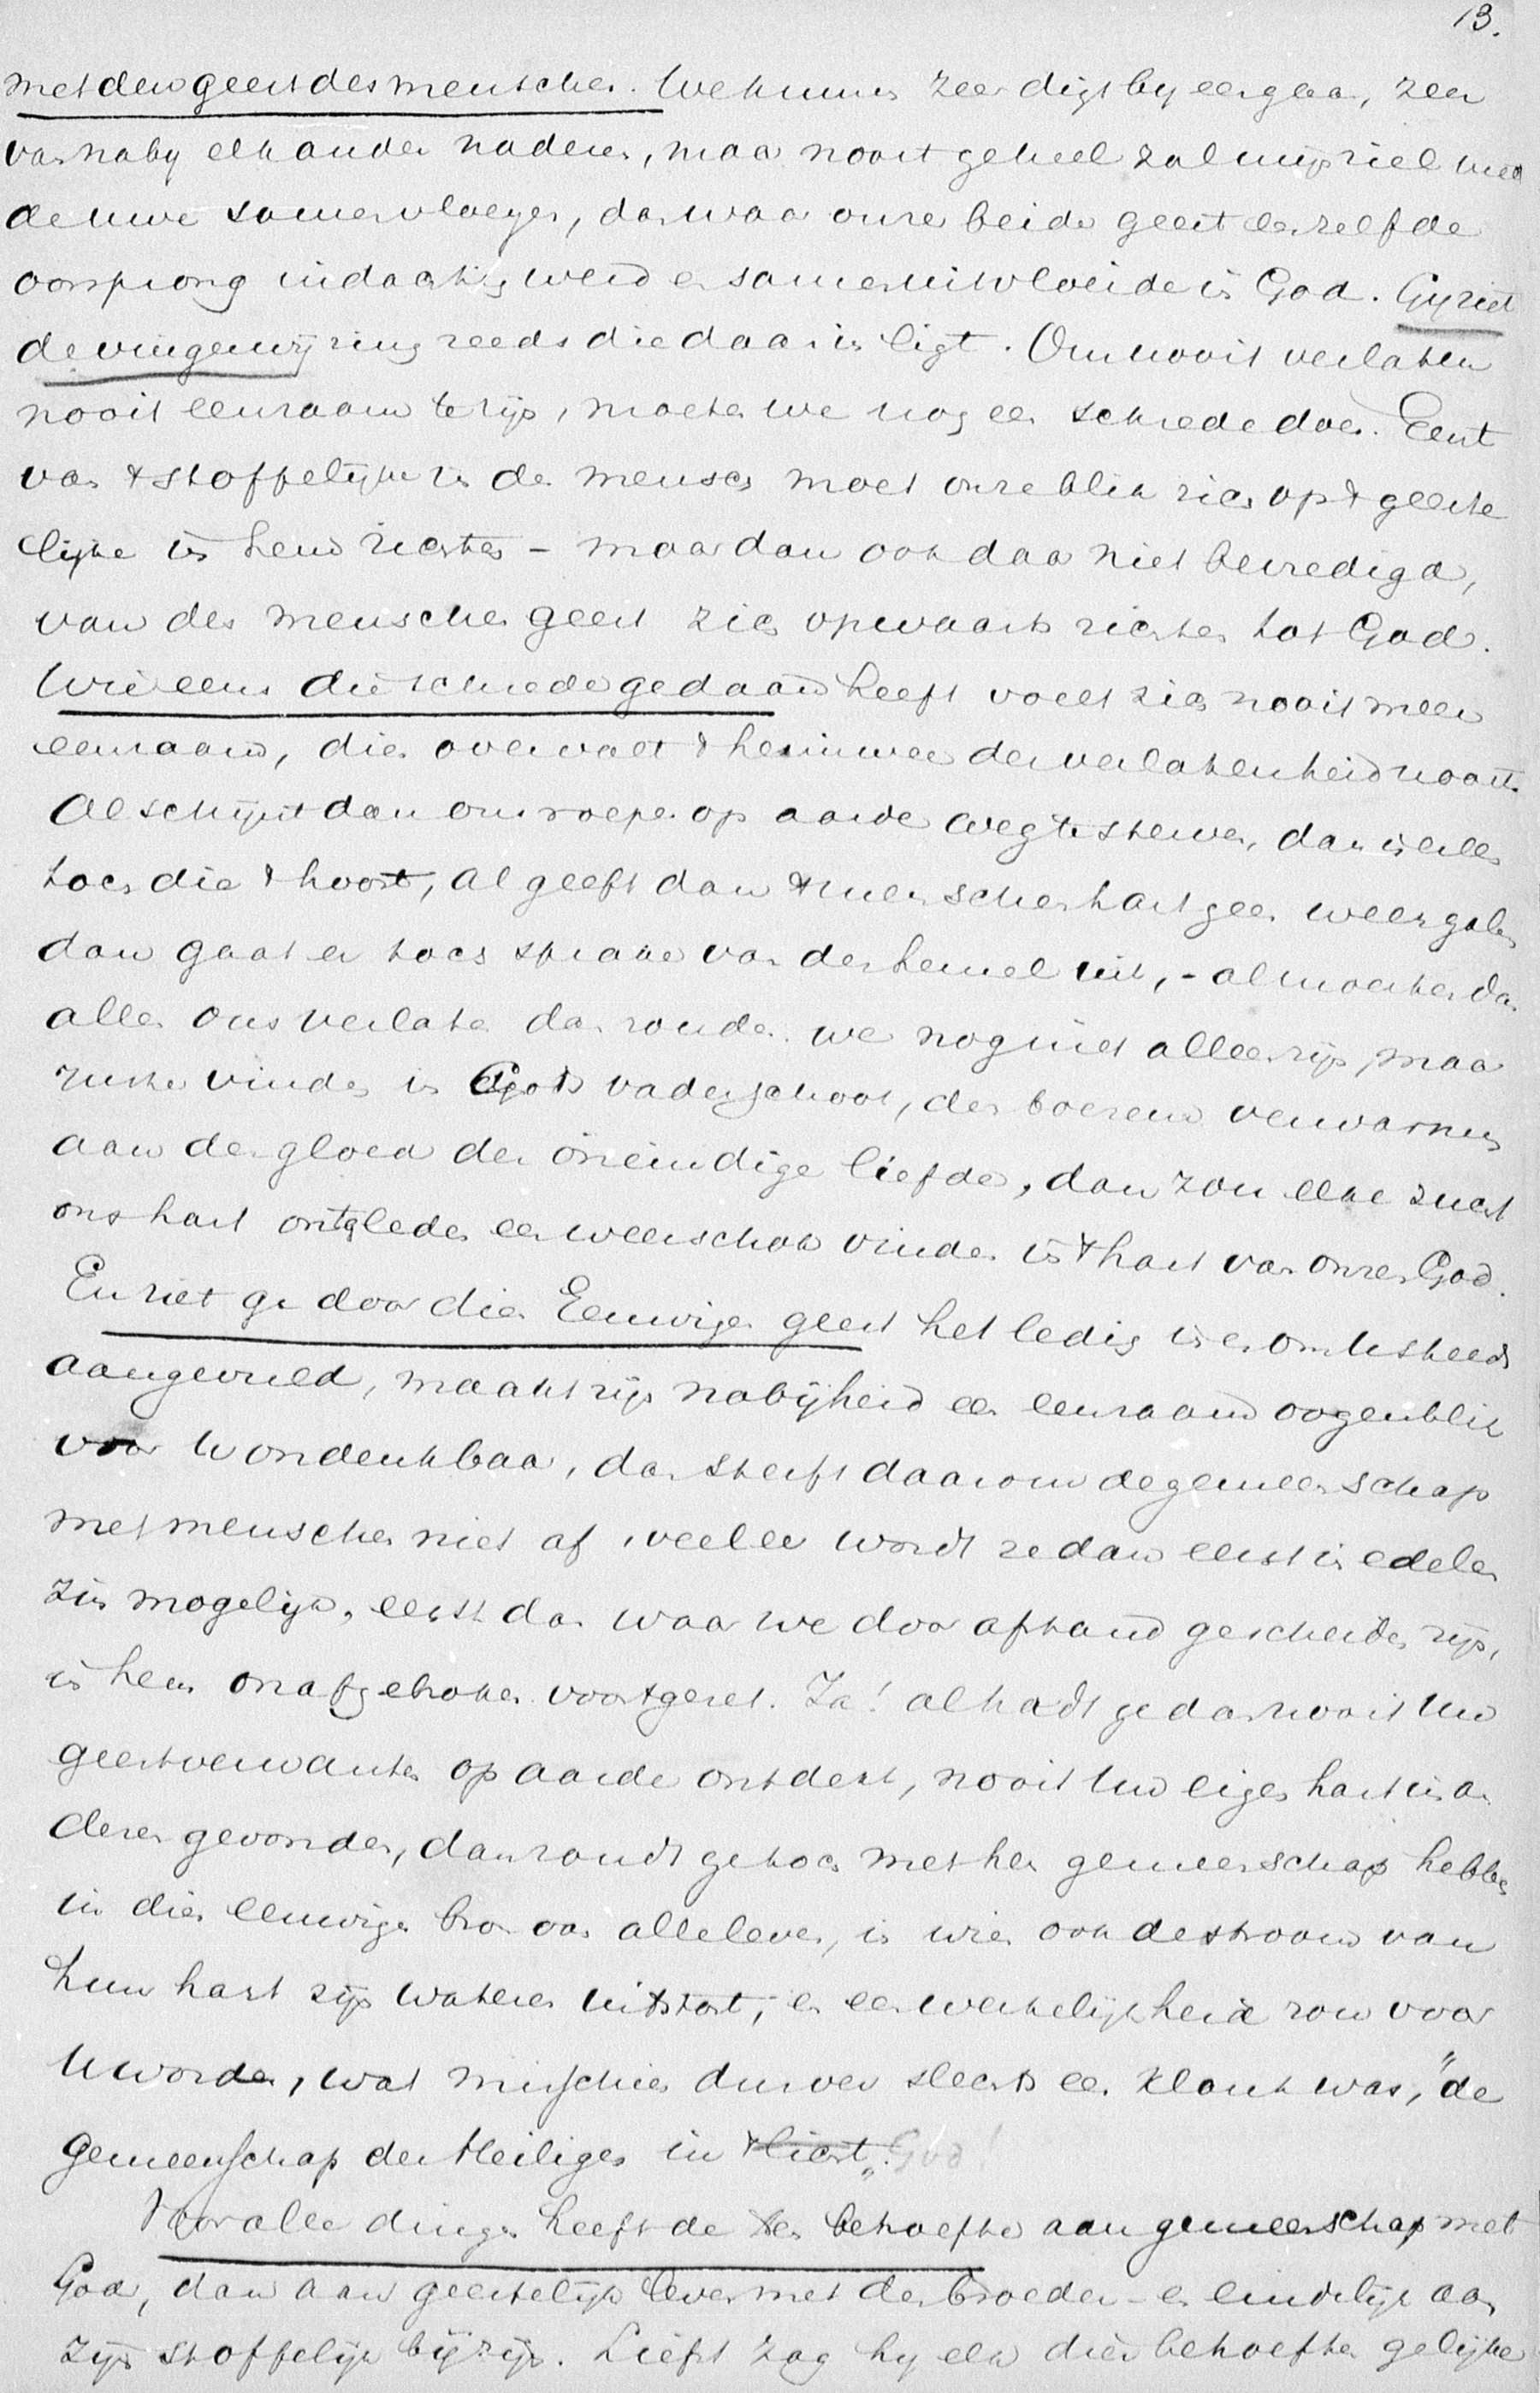 13.
met den geest des menschen. We kunnen zeer digt by een gaan, zeer
van naby elkander naderen, maar nooit geheel zal mijn ziel met
de uwe samenvloeijen, dan waar onze beide geest denzelfde
oorsprong indachtig werd en samen uitvloeide in God. Gy ziet
de vingerwijzing reeds die daarin ligt. Om nooit verlaten
nooit eenzaam te zijn, moeten we nog een schrede doen. Eerst
van 't stoffelijke in den mensch moet onze blik zich op 't geeste
lijke in hem richten - maar dan ook daar niet bevredigd,
van des menschen geest zich opwaarts richten tot God.
Wie eens die schrede gedaan heeft voelt zich nooit meer
eenzaam, dien overvalt 't heimwee der verlatenheid nooit.
Al schijnt dan ons roepen op aarde weg te sterven, dan is er een
toch die 't hoort, al geeft dan 't menschenhart geen weergalm
dan gaat er toch sprake van den hemel uit, - al moesten dan
allen ons verlaten dan zouden we nog niet alleen zijn, maar
ruste vinden in Gods vaderschoot, den boezem verwarmen
aan den gloed der oneindige liefde, dan zou elke zucht
ons hart ontgleden een weerschok vinden in 't hart van onzen God.
En ziet ge door dien Eeuwigen geest het ledig in en om U steeds
aangevuld, maakt zijn nabijheid een eenzaam oogenblik
voor U ondenkbaar, dan sterft daarom de gemeenschap
met menschen niet af, veeleer wordt ze dan eerst in edelen
zin mogelijk, eerst dan waar we door afstand gescheiden zijn,
in hem onafgebroken voortgezet. Ja! al hadt ge dan nooit Uw
geestverwanten op aarde ontdekt, nooit Uw eigen hart in an
deren gevonden, dan zoudt ge toch met hen gemeenschap hebben
in dien eeuwigen bron van alle leven, in wien ook de stroom van
hun hart zijn wateren uitstort, en een werkelijkheid zou voor
U worden, wat misschien dusver slechts een klank was, "de
Gemeenschap der Heiligen in God!
Voor alle dingen heeft de behoefte aan gemeenschap met
God, dan aan geestelijk leven met den broeder - en eindelijk aan
zijn stoffelijk bijzijn. Liefst zag hy elk dier behoeften gelijke